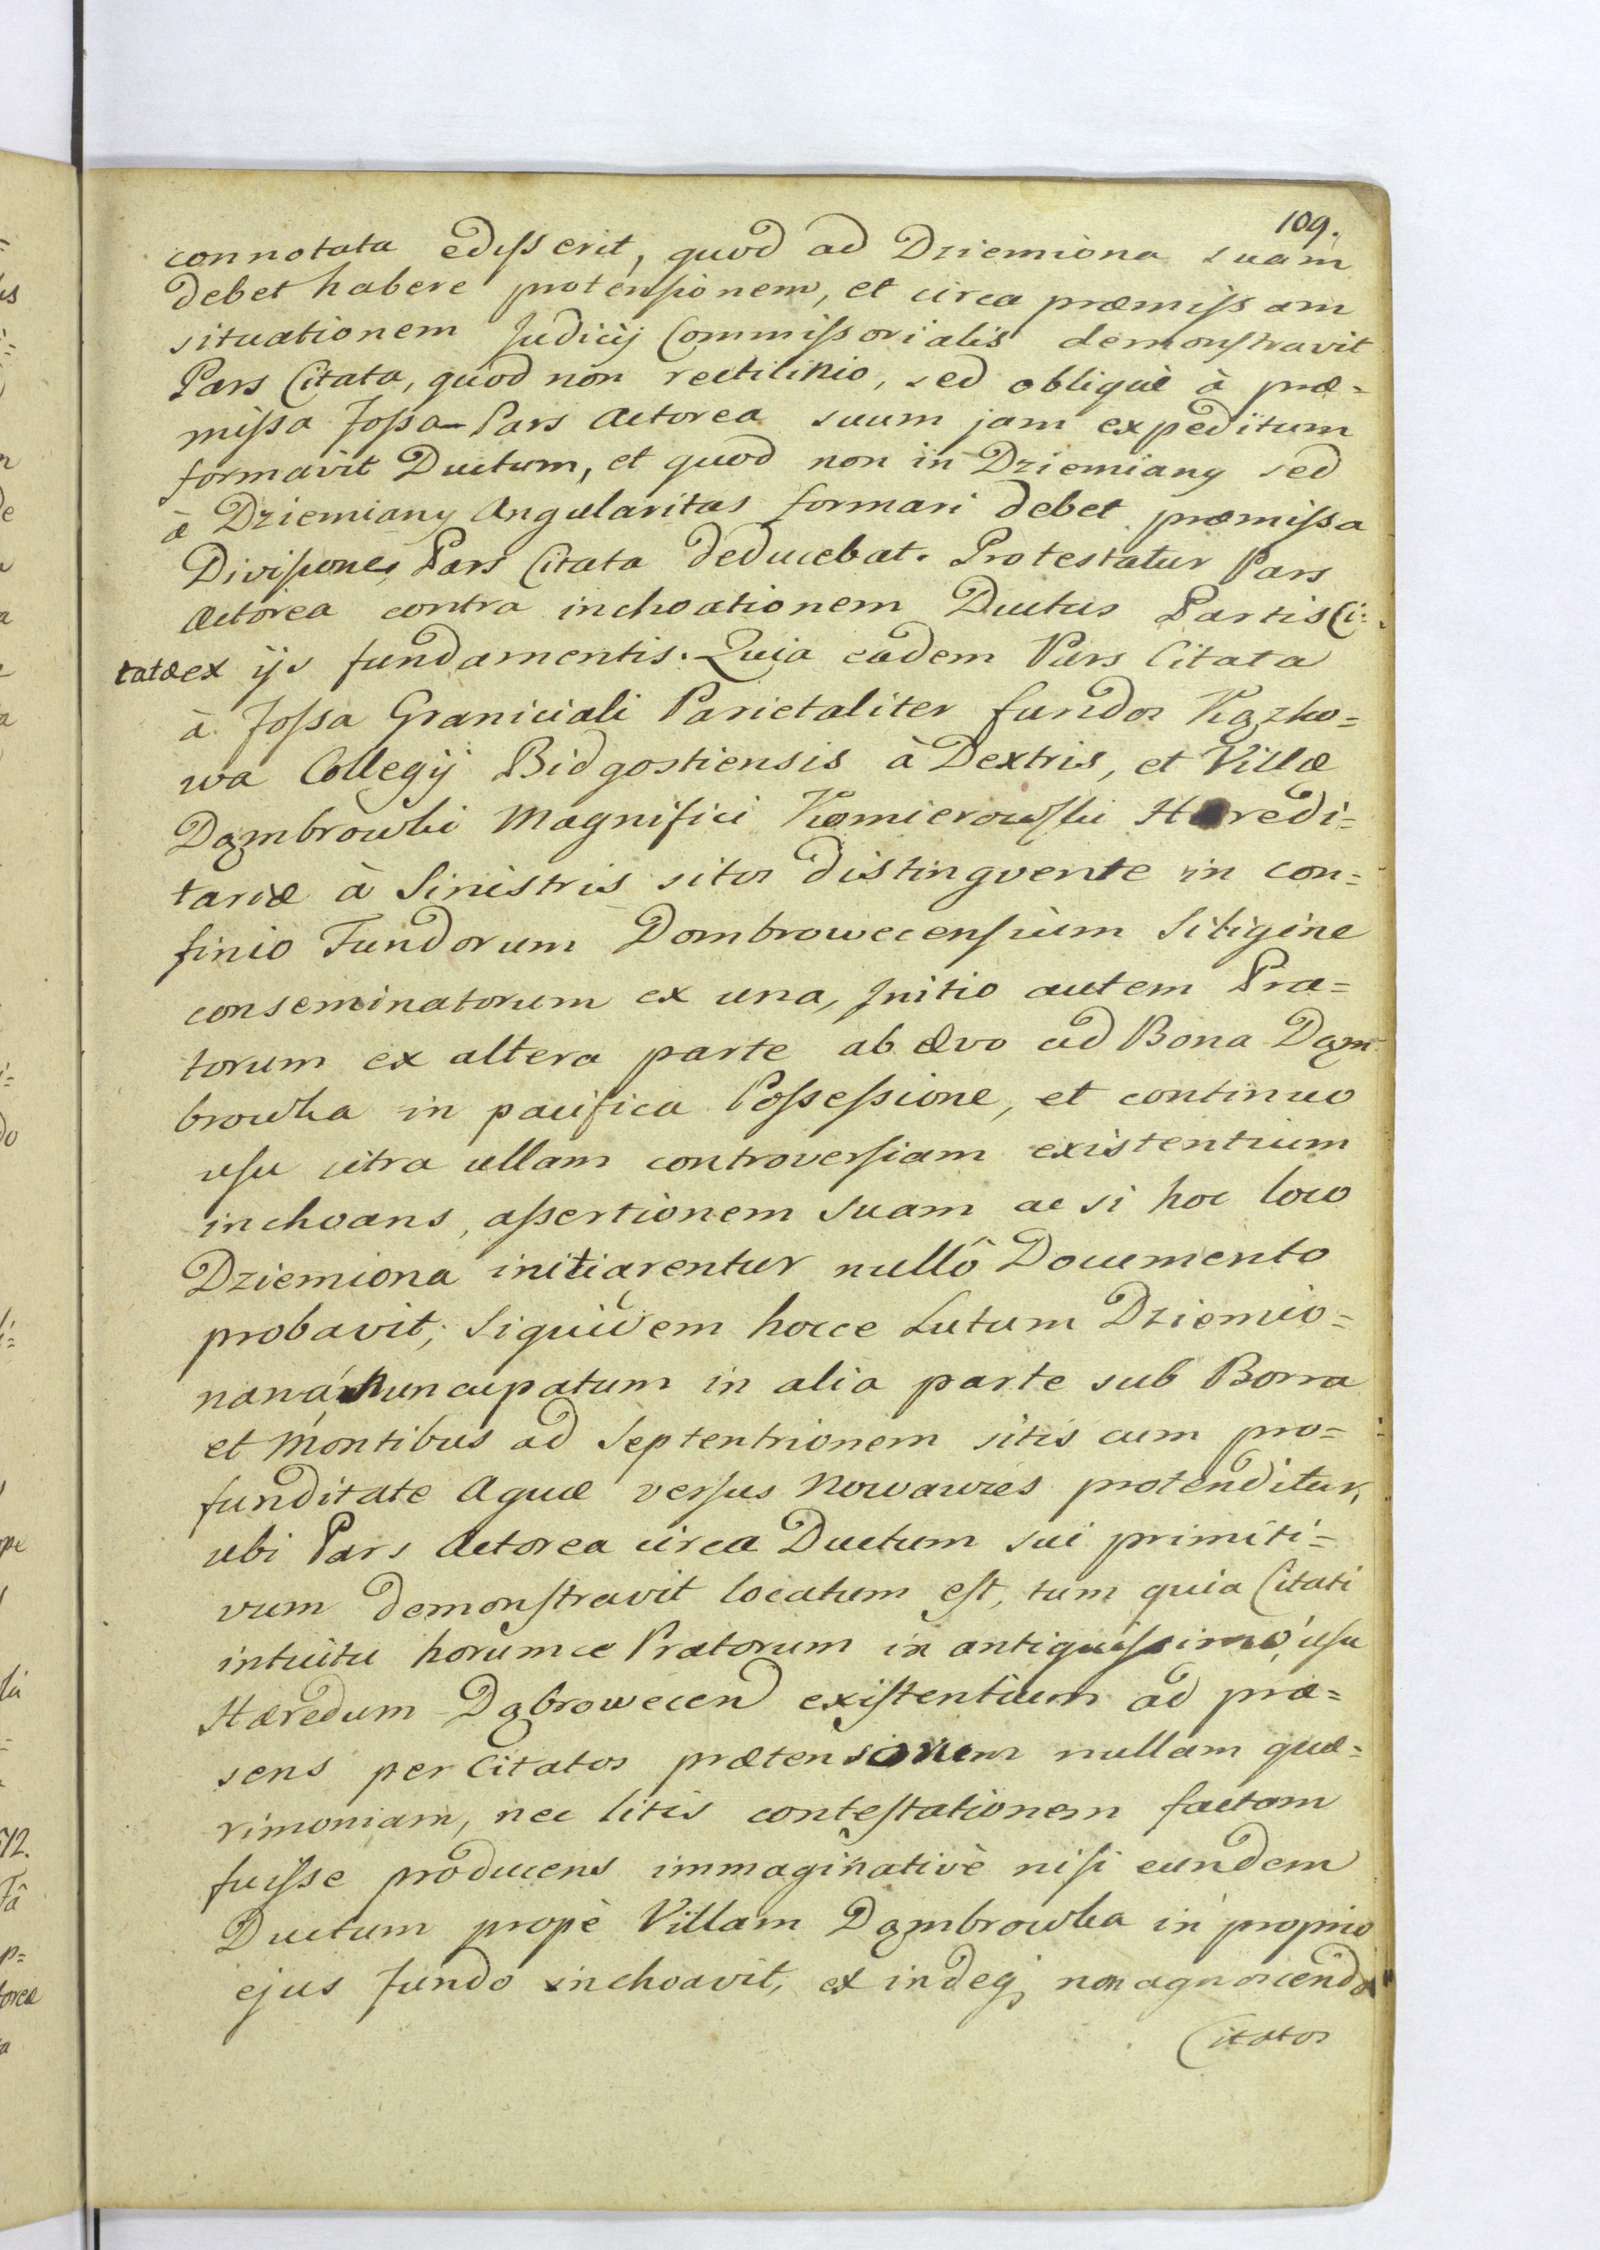 109.
connotata edisserit, quod ad Dziemiona suam
debet habere protensionem, et circa præmissam
situationem Judicij Commissorialis demonstravit
Pars Citata, quod non rectilinio, sed obliquè à præ=
missa Fossa Pars Actorea suum jam expeditum
formavit Ductum, et quod non in Dziemiany sed
à Dziemiany Angularitas formari debet præmissa
Divisione, Pars Citata deducebat. Protestatur Pars
Actorea contra inchoationem Ductus Partis Ci=
tatæ ex ijs fundamentis. Quia eadem Pars Citata
à Fossa Graniciali Parietaliter fundos
wa Collegij Bidgostiensis à Dextris, et Villæ
Dąmbrowki Magnifici Komierowski Hæredi=
tariæ à Sinistris sitos distingvente in con=
finio Fundorum Dombrowecensium Siligine
conseminatorum ex una, Initio autem Pra=
torum ex altera parte ab ævo ad Bona Dąm
browka in pacifica Possessione, et continuo
usu citra ullam controversiam existentium
inchoans, assertionem suam ac si hoc loco
Dziemiona initiarentur nullô Documento
probavit, siquidem hocce Lutum Dziemio=
nana nuncupatum in alia parte sub Borra
et Montibus ad Septentrionem sitis cum pro=
funditate Aquæ versus Nowawies protenditur,
ubi Pars Actorea circa Ductum sui primiti=
vum demonstravit locatum est, tum quia Citati
intuitu horumce Pratorum in antiquissimo usu
Hæredum Dąbrowecen existentium ad præ=
sens per Citatos prætensionem nullam quæ=
rimoniam, nec litis contestationem factam
fuisse producens immaginativè nisi eundem
Ductum propè Villam Dąmbrowka in proprio
ejus fundo inchoavit, ex indeq; non agnoscendo
Citatos